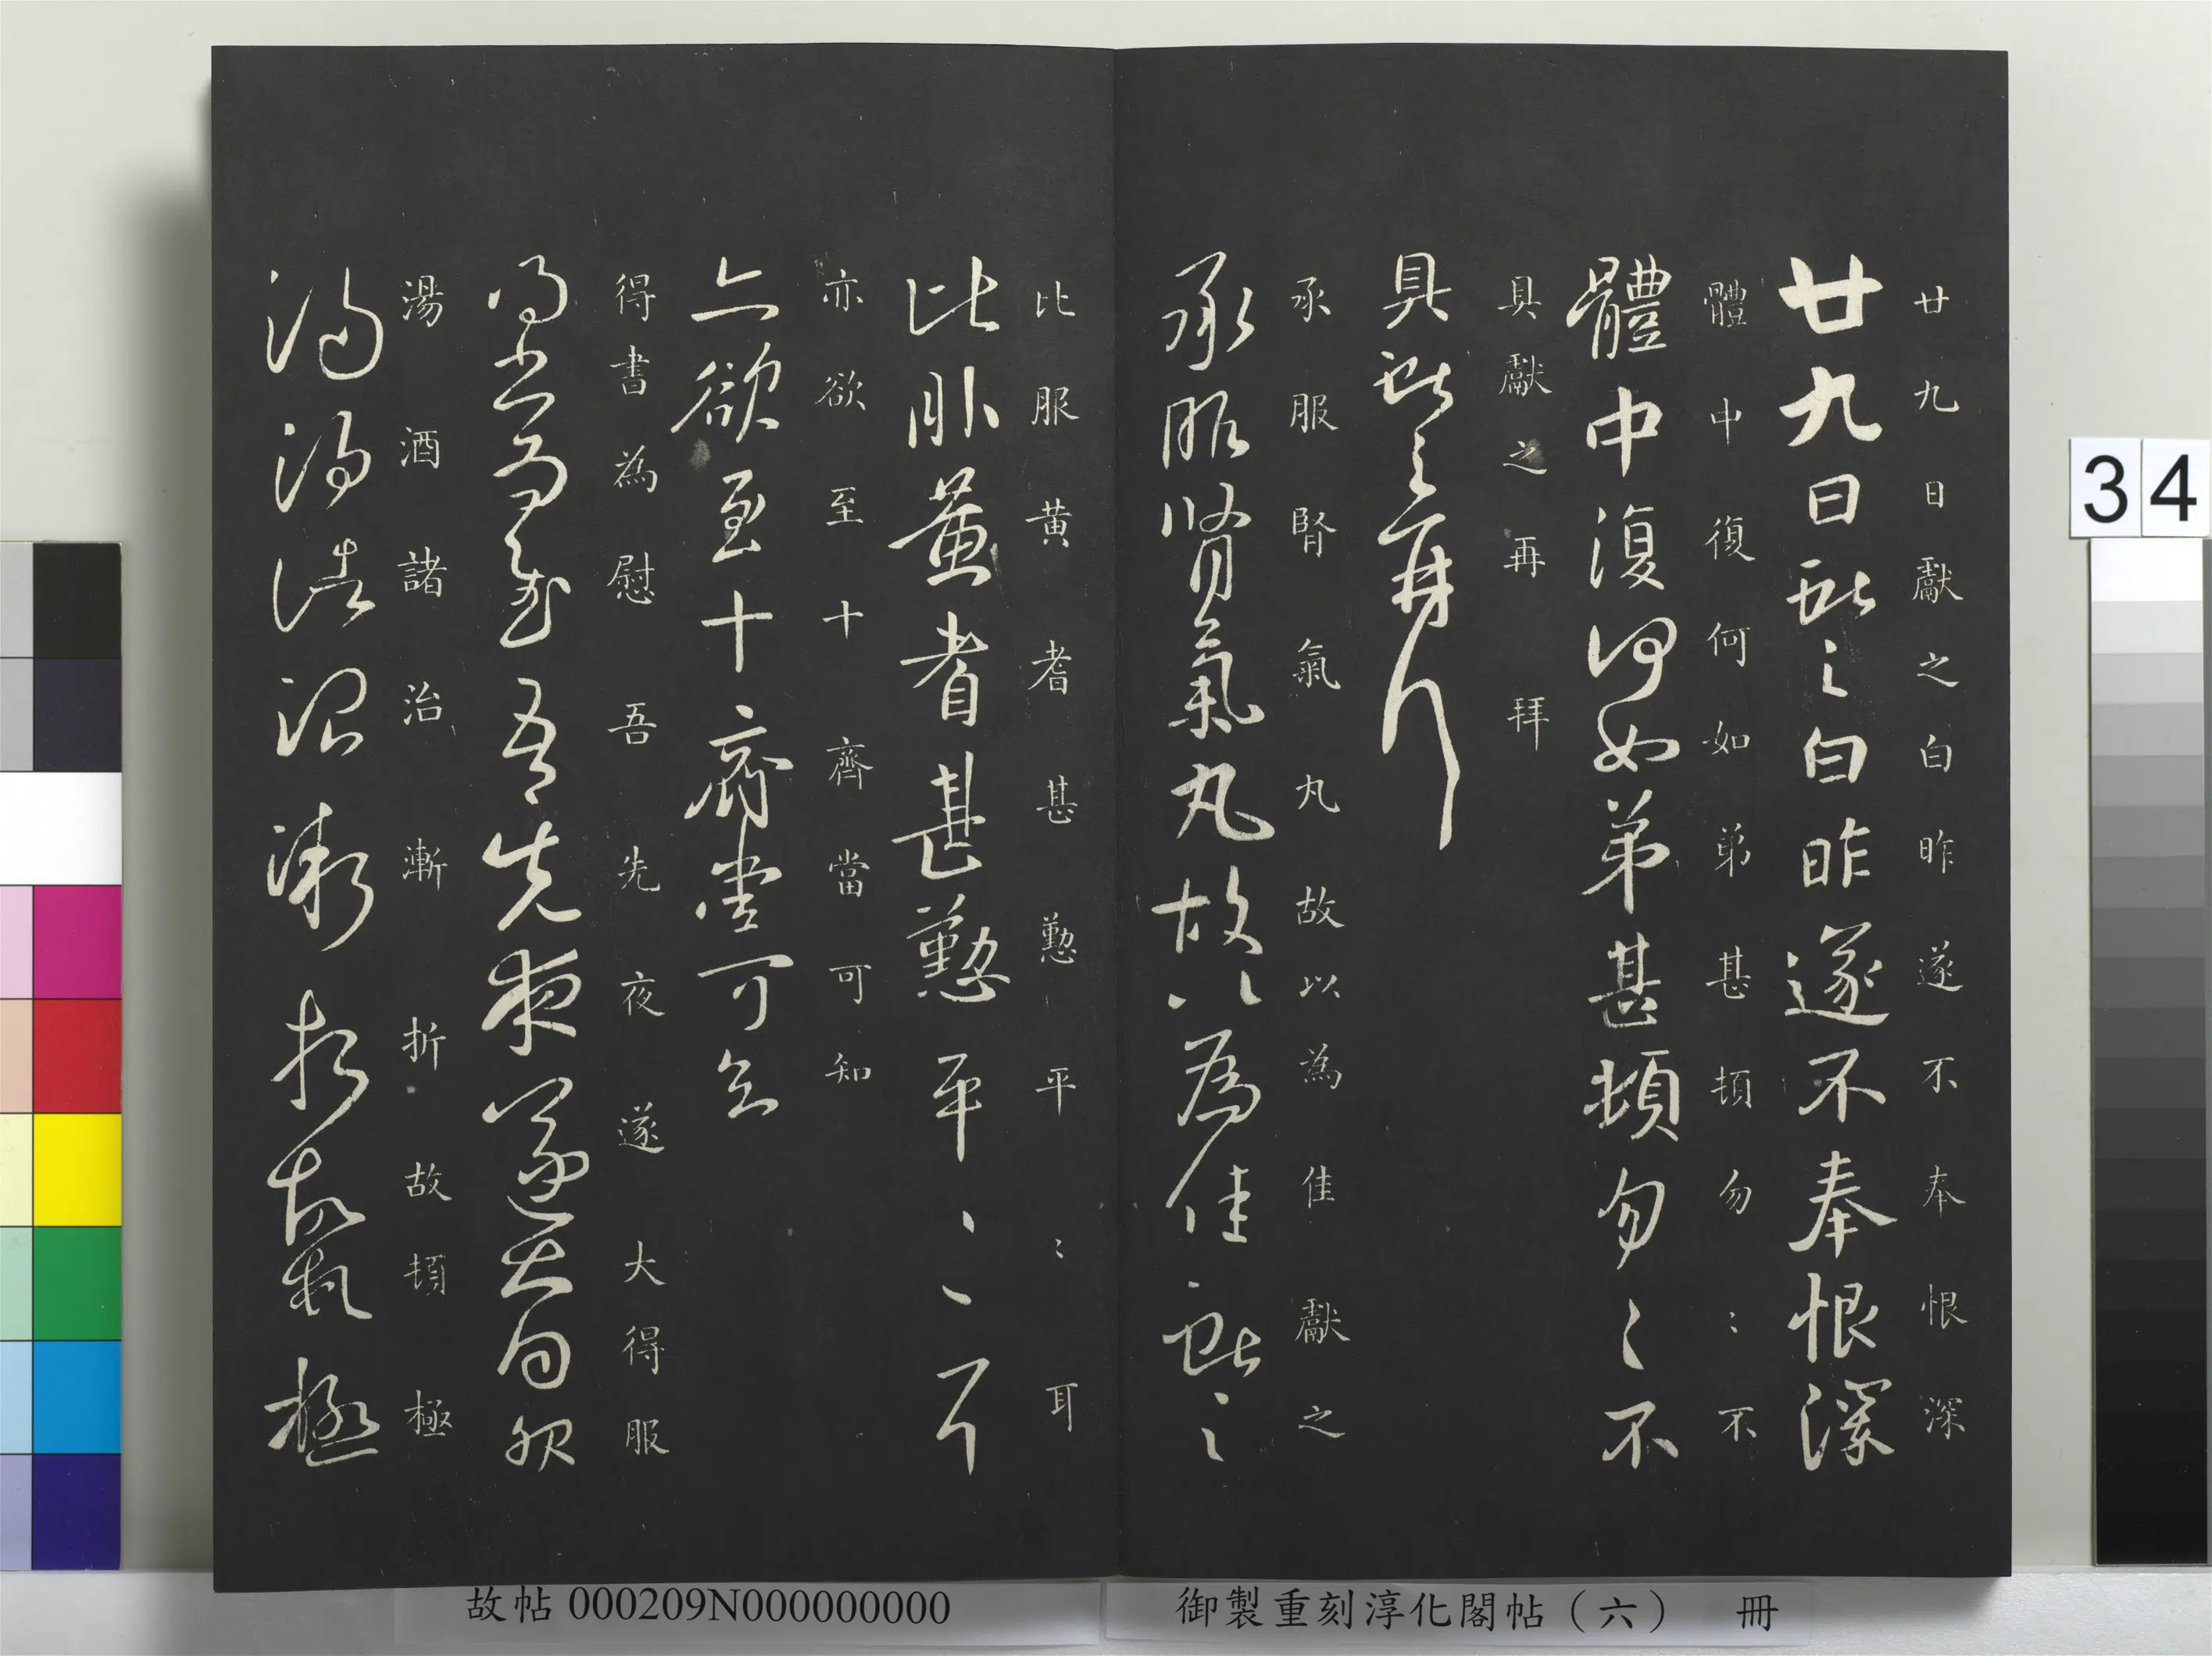 廿九日獻之白昨遂不奉恨深
廿九日獻之白昨遂不奉恨深
體中復何如弟甚頓勿：不
體中復何如弟甚頓勿〻不
具獻之再拜
具獻之再拜
承服腎氣丸故以為佳獻之
承服腎氣丸故以為佳獻之
比服黃耆甚懃平：耳
比服黃耆甚懃平〻耳
亦欲至十齊當可知
亦欲至十齊當可知
得書為慰吾先夜遂大得服
得書為慰吾先夜遂大得服
湯酒諸治漸折故頓極
湯酒諸治漸折故頓極
34
御製重刻淳化閣帖（六） 冊
故帖 000209N000000000